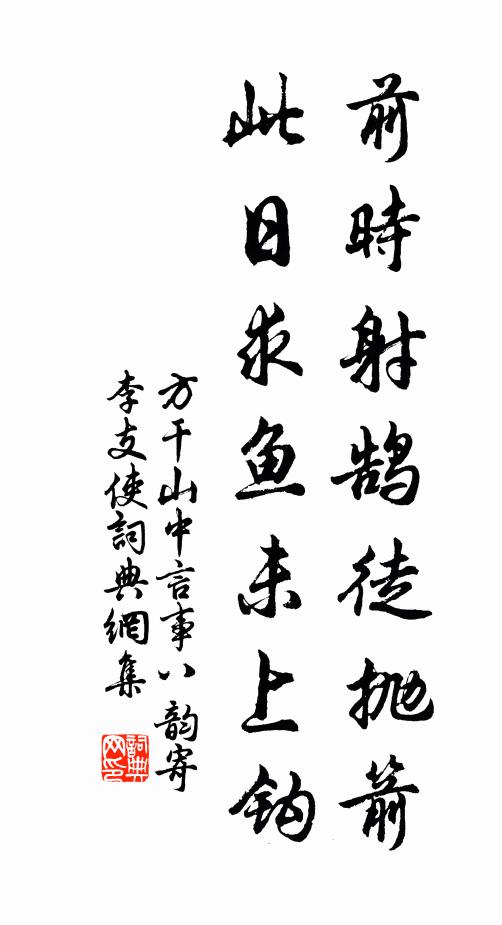 前時射鵠徒抛箭
此日求鱼未上鈎
方干山中言事八韵寄
李支使詞典網集
詞典
网印